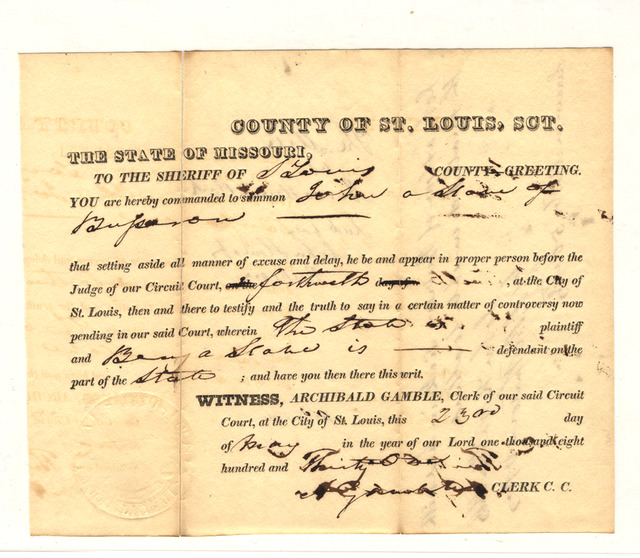 COUNTY OF ST. LOUIS, SCT.
THE STATE OF MISSOURI,
TO THE SHERIFF OF St Louis COUNTY—GREETING.
YOU are hereby commanded to summon John a Slave of
that setting aside all manner of excuse and delay, he be and appear in proper person before the
Judge of our Circuit Court, on the forthwith day of , at the City of
St. Louis, then and there to testify and the truth to say in a certain matter of controversy now
pending in our said Court, wherein The State is plaintiff
and a Slave is defendant on the
part of the State ; and have you then there this writ.
WITNESS, ARCHIBALD GAMBLE, Clerk of our said Circuit
Court, at the City of St. Louis, this 23rd day
of May in the year of our Lord one thousand eight
hundred and Thirty
A Gamble CLERK C. C.